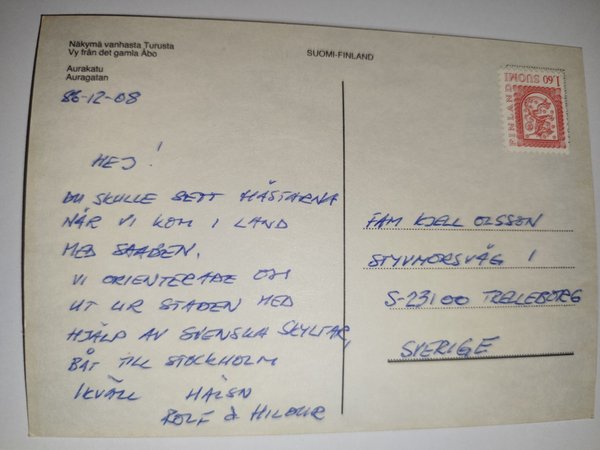 Näkymä vanhasta Turusta
Vy från det gamla Åbo
SUOMI-FINLAND
Aurakatu
Auragatan
86-12-08
HEJ!
DU SKULLE SETT HÄSTARNA
NÄR VI KOM I LAND
MED SAABEN.
VI ORIENTERADE OSS
UT UR STADEN MED
HJÄLP AV SVENSKA SKYLTAR,
BÅT TILL STOCKHOLM
IKVÄLL HÄLSN
ROLF & HILDUR
1,60 SUOMI
FINLAND
FAM KJELL OLSSON
STYVMORSVÄG 1
S-23100 TRELLEBORG
SVERIGE